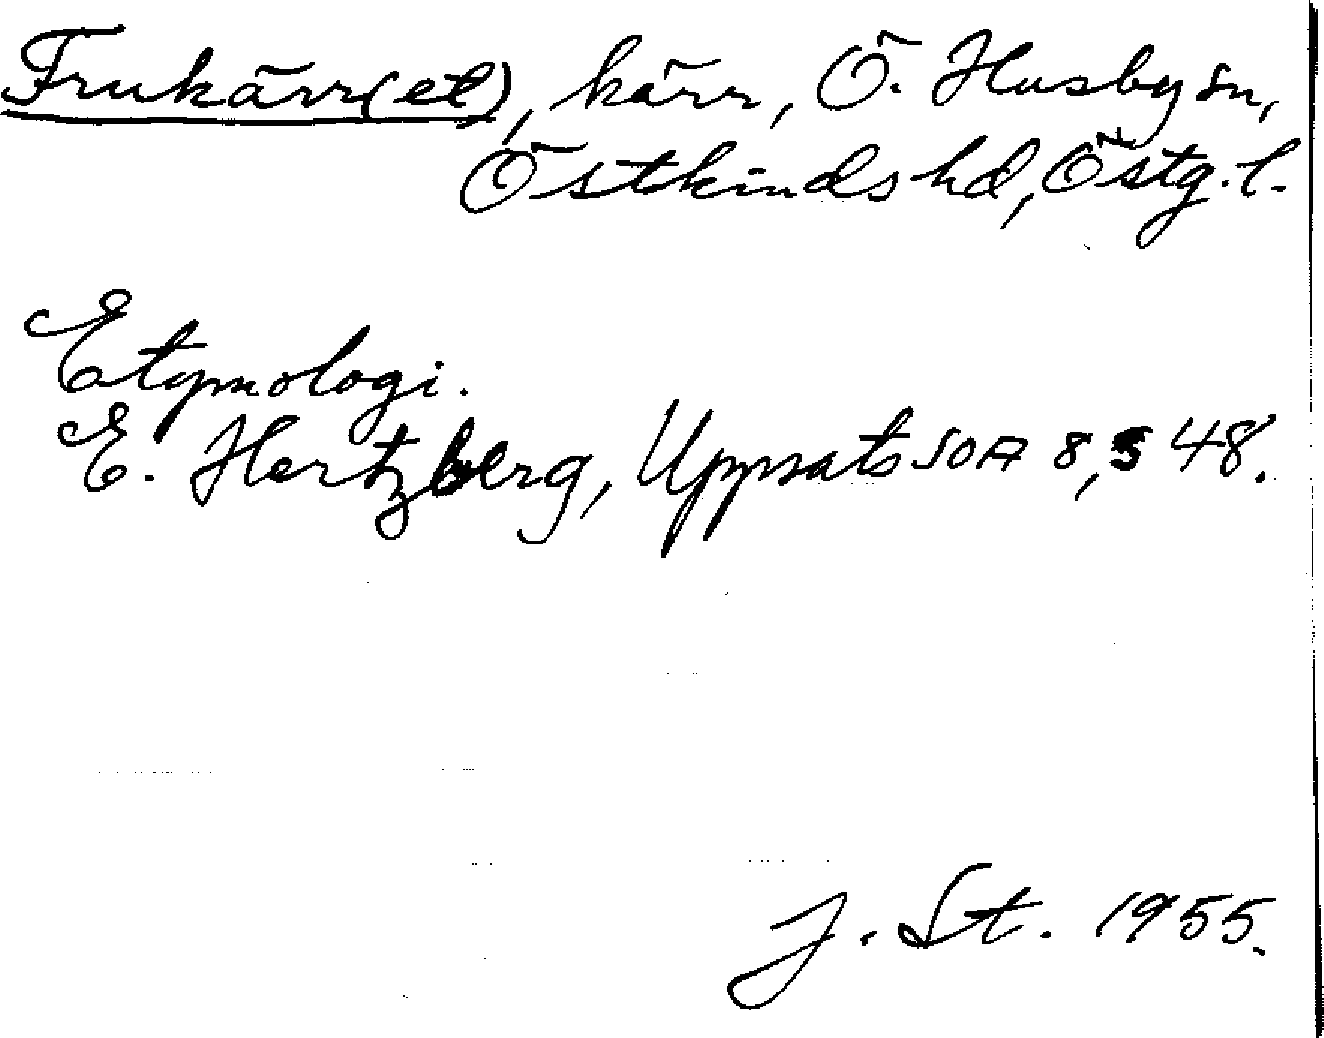 Frukärr(et), kärr, Ö. Husby sn,
Östkinds hd, Östg. l.
Etymologi.
E. Hertzberg, Uppsats SOA 8, s 48.
J. St. 1955.